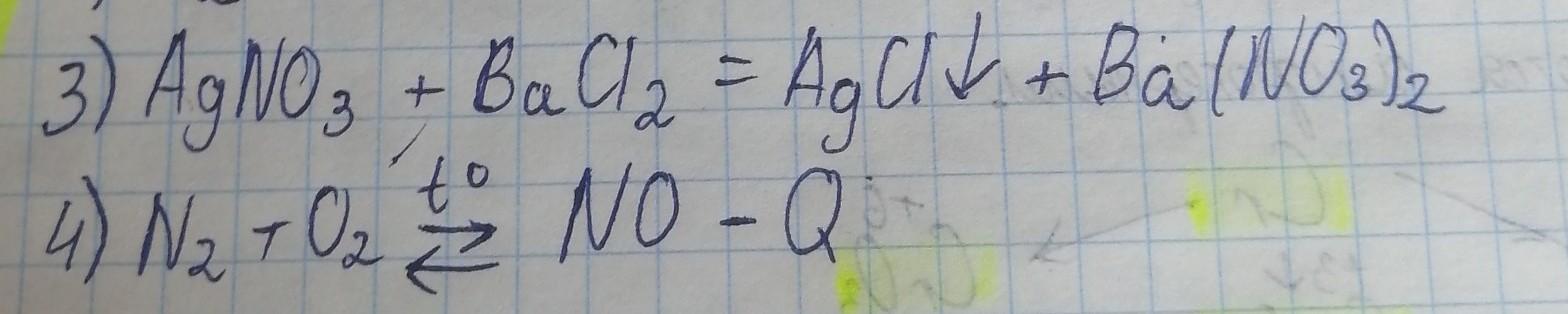 3) AgNO₃ + BaCl₂ = AgCl↓ + Ba(NO₃)₂
4) N₂ + O₂ ⇄ t° NO - Q